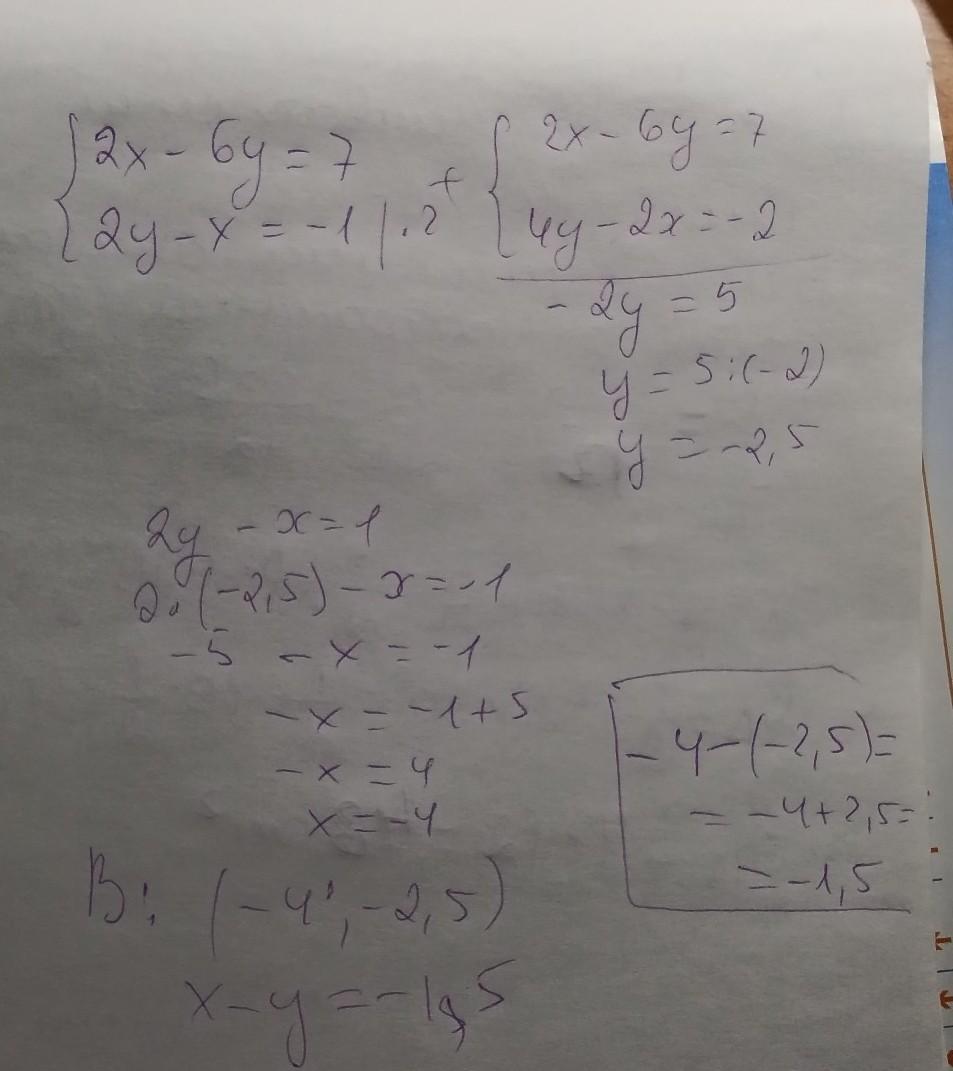 2x - 6y = 7
2y - x = -1 | · 2
+ 2x - 6y = 7
4y - 2x = -2
- 2y = 5
y = 5 : (-2)
y = -2,5
2y - x = 1
2 · (-2,5) - x = -1
-5 - x = -1
-x = -1 + 5
-x = 4
x = -4
-4 - (-2,5) =
= -4 + 2,5 =
= -1,5
В: (-4; -2,5)
x - y = -1,5